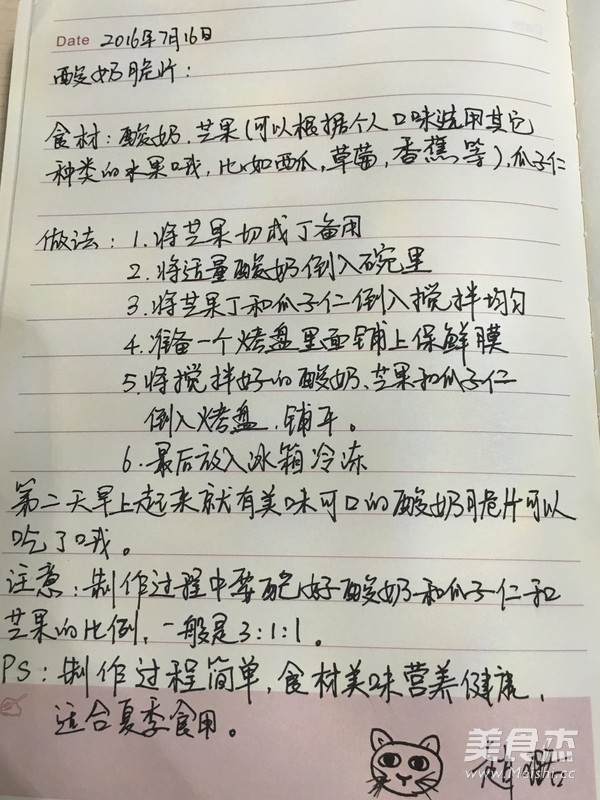 Date 2016年7月16日
酸奶脆片：
食材：酸奶、芒果(可以根据个人口味选用其它
种类的水果哦，比如西瓜，草莓，香蕉等)，瓜子仁
做法：1.将芒果切成丁备用
2.将适量酸奶倒入碗里
3.将芒果丁和瓜子仁倒入搅拌均匀
4.准备一个烤盘里面铺上保鲜膜
5.将搅拌好的酸奶、芒果和瓜子仁
倒入烤盘，铺平。
6.最后放入冰箱冷冻
第二天早上起来就有美味可口的酸奶脆片可以
吃了哦。
注意：制作过程中要配好酸奶和瓜子仁和
芒果的比例，一般是3:1:1。
PS：制作过程简单，食材美味营养健康，
适合夏季食用。
美食杰
www.Meishi.cc